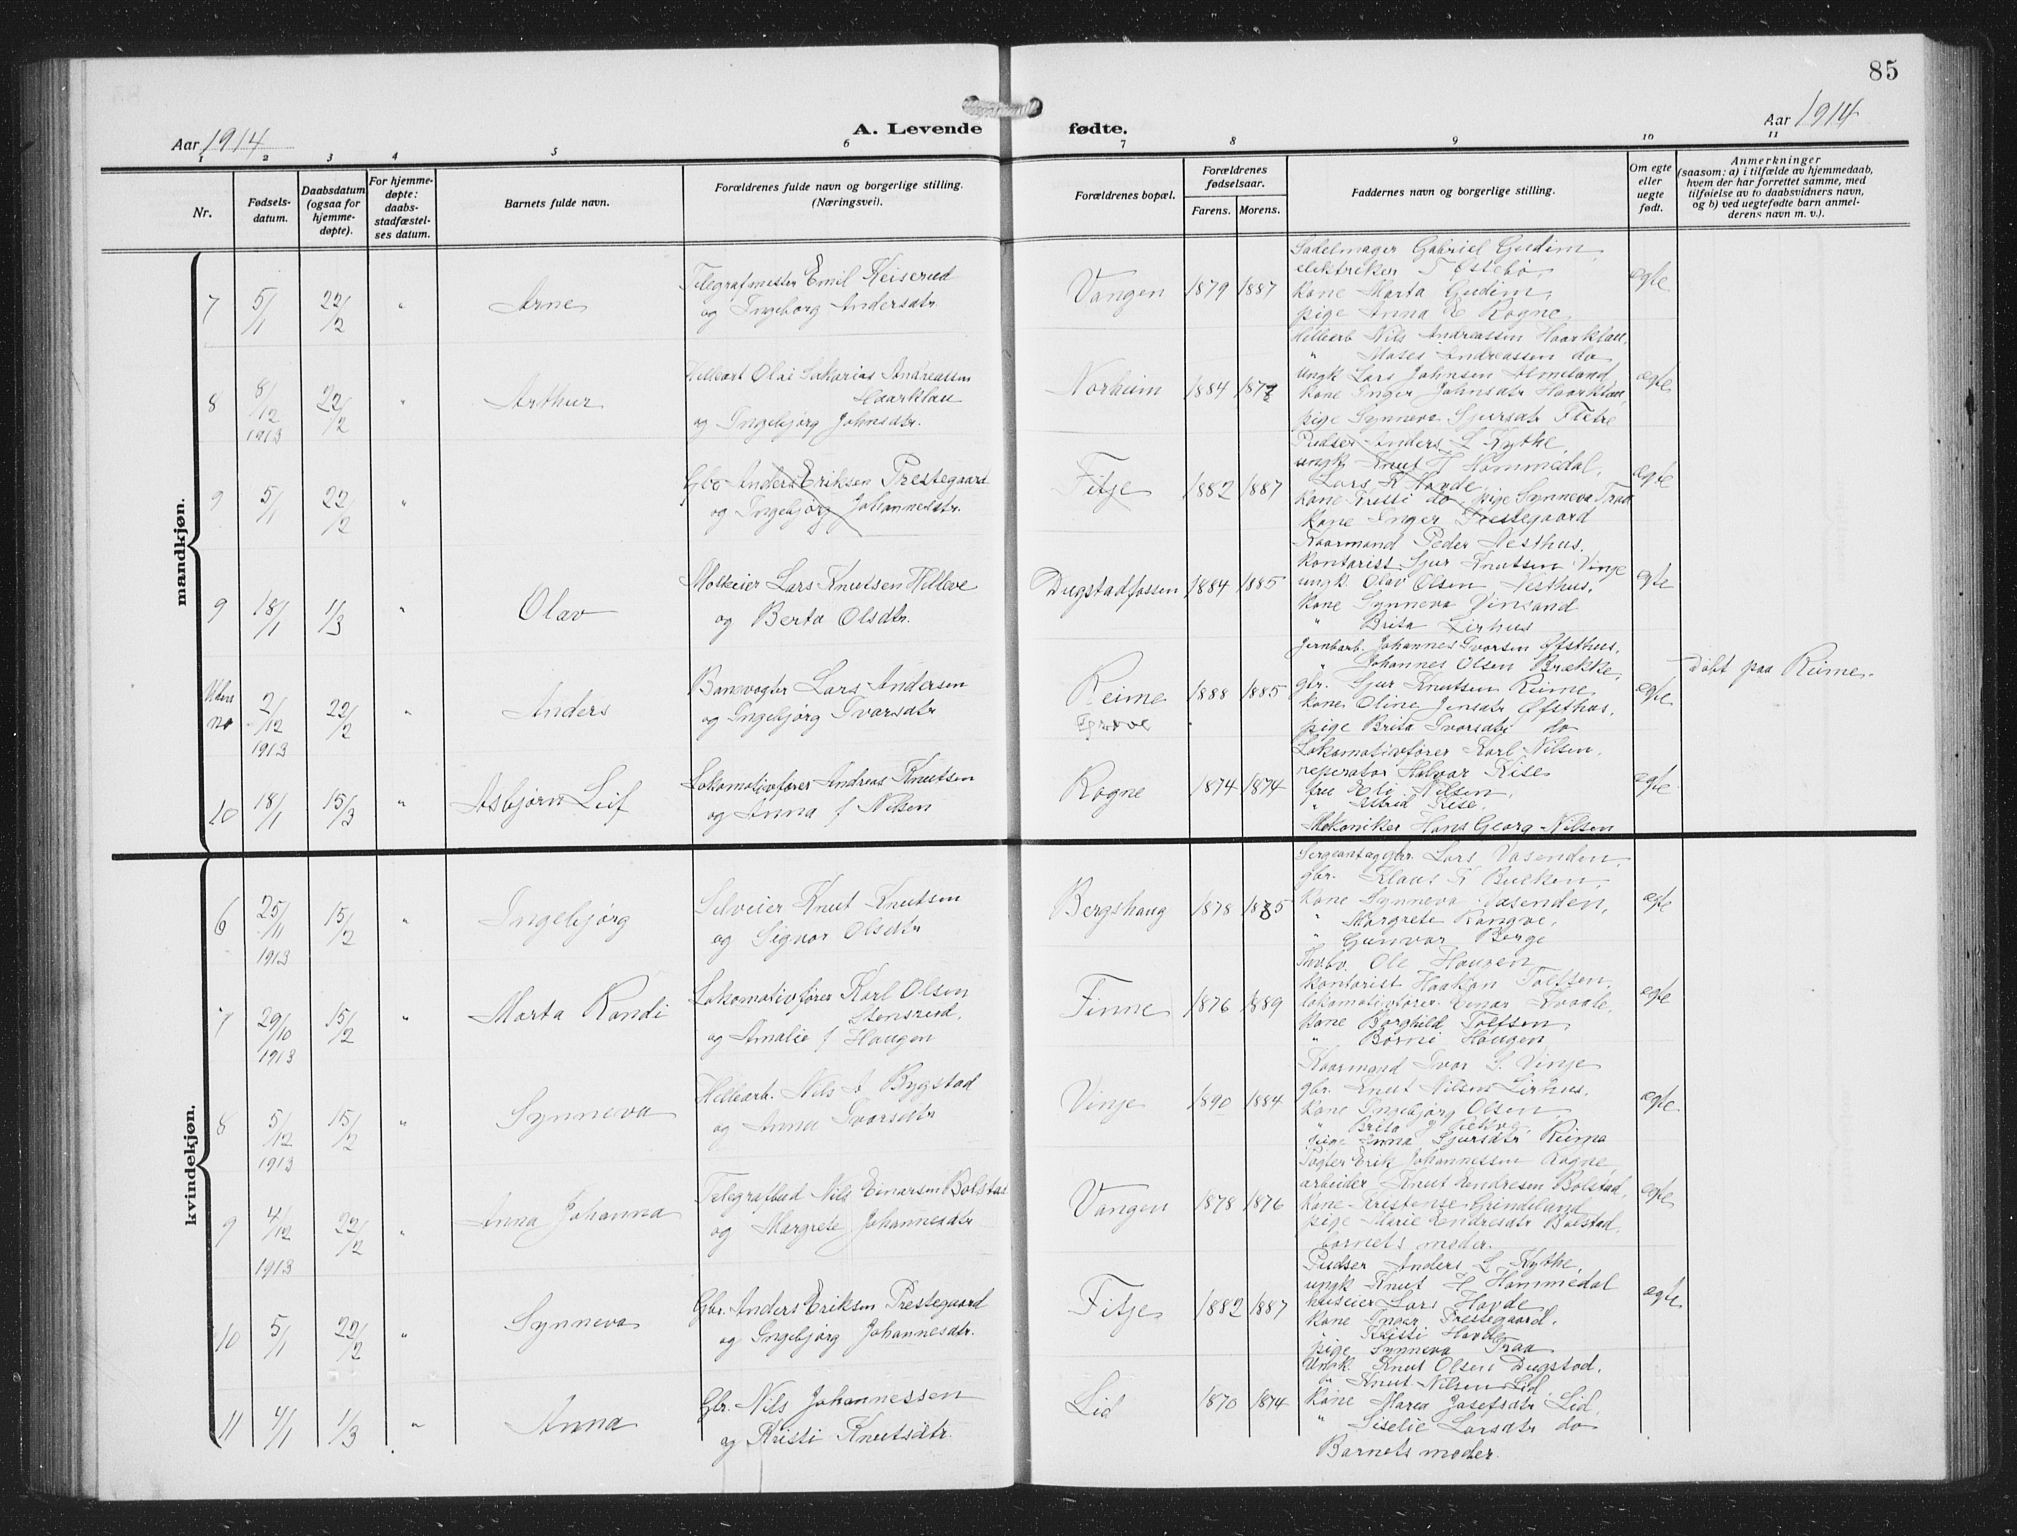 85
Aar 1914
A. Levende fødte.
Aar 1914
1 2 3 4 5 6 7 8 9 10 11
Nr.
Fødsels-
datum.
Daabsdatum
(ogsaa for
hjemme-
døpte).
For hjemme-
døpte:
daabs-
stadfæstel-
ses datum.
Barnets fulde navn.
Forældrenes fulde navn og borgerlige stilling.
(Næringsvei).
Forældrenes bopæl.
Forældrenes
fødselsaar.
Farens. Morens.
Faddernes navn og borgerlige stilling.
Om egte
eller
uegte
født.
Anmerkninger
(saasom: a) i tilfælde av hjemmedaab,
hvem der har forrettet samme, med
tilføielse av to daabsvidners navn,
og b) ved uegtefødte barn anmel-
derens navn m. v.).
mandkjøn.
7 5/1 22/2 " Arne
Telegrafmester Emil Keiserud
og Ingeborg Andersdtr.
Vangen 1879 1887
Sadelmager Gabriel Gudim,
elektriker T Østebø,
kone Marta Gudim,
pige Anna E Rogne,
egte
8 8/12 1913 22/2 " Arthur
Hellearb Olai Sakarias Andreassen
Haarklau
og Ingebjørg Johnsdtr.
Norheim 1884 1872
Hellearb Nils Andreassen Haarklau,
" Moses Andreassen do
ungk Lars Johnsen
kone Inger Johnsdtr Haarklau,
pige Synneva Sjursdtr Fletre
egte
9 5/1 22/2 "
Gbr Anders Eriksen Prestegaard
og Ingebjørg Johannesdtr.
Fitje 1882 1887
Pudser Anders L Kythe,
ungk Knut H Hammedal,
Lars K Havde,
kone Kristi do, pige Synneva Traa
kone Inger Prestegaard
egte
9 18/1 1/3 " Olav
Molkeier Lars Knutsen Helleve
og Berta Olsdtr.
Dugstadfossen 1884 1885
Kaarmand Peder Nesthus,
kontorist Sjur Knutsen Vinje
ungk. Olav Olsen Nesthus,
kone Synneva Vinsand
" Brita Lirhus
egte
Uten
no 2/12 1913 22/2 " Anders
Banevogter Lars Andersen
og Ingebjørg Ivarsdtr
Reime 1888 1885
Jernbarb. Johannes Ivorsen Øfsthus,
" Johannes Olsen Brække,
gbr. Sjur Knutsen Reime,
kone Oline Jensdtr Øfsthus,
pige Brita Ivorsdtr do
egte
Døbt paa Reime.
10 18/1 15/3 " Asbjørn Leif
Lokomotivfører Andreas Knutsen
og Anna f Nilsen
Rogne 1874 1874
Lokomotivfører Karl Nilsen,
reperatør Halvor Kise
fru Eli Nilsen,
" Astrid Kise,
Mekaniker Hans Georg Nilsen
egte
kvindekjøn.
6 25/11 1913 15/2 " Ingebjørg
Selveier Knut Knutsen
og Signor Olsdtr
Bergshaug 1878 1885
Sergeantoggbr. Lars Vasenden,
gbr. Klaus K Bulken,
kone Synneva Vasenden,
" Margrete Rongve,
" Gunvor Berge
egte
7 29/10 1913 15/2 " Marta Randi
Lokomotivfører Karl Olsen
Stensrud,
og Amalie f Haugen
Finne 1876 1889
Ole Haugen
kontorist Haakon Tolfsen,
lokomotivfører Einar Kvaale,
kone Borghild Tolfsen
" Borni Haugen
egte
8 5/12 1913 15/2 " Synneva
Hellearb. Nils A Bygstad
og Anna Ivorsdtr
Vinje 1890 1884
Kaarmand Ivar S. Vinje
gbr. Knut Nilsen Lirhus,
kone Ingebjørg Olsen,
" Brita
pige Anna Sjursdtr Reime
egte
9 4/12 1913 22/2 " Anna Johanna
Telegrafbud Nils Einarsen Bolstad
og Margrete Johannesdtr
Vangen 1878 1876
Erik Johannessen Rogne
arbeider Knut Endresen Bolstad,
kone Kristense Grindeland
pige Marie Endresdtr Bolstad,
barnets moder.
egte
10 5/1 22/2 " Synneva
Gbr. Anders Eriksen Prestegaard
og Ingebjørg Johannesdtr.
Fitje 1882 1887
Pudser Anders L Kythe,
ungk Knut H Hammedal
huseier Lars Havde
kone Inger Prestegaard.
" Kristi Havde
pige Synneva Traa
egte
11 4/1 1/3 " Anna
Gbr. Nils Johannessen
og Kristi Knutsdtr.
Lid 1870 1874
Ungk. Knut Olsen Dugstad,
do Knut Nilsen Lid
kone Maria Josefsdtr Lid,
" Siselie Larsdtr do
Barnets moder.